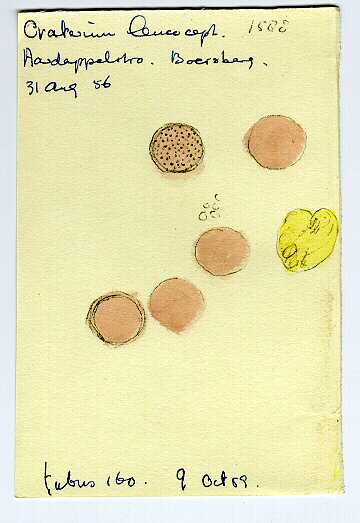 Craterium leucoceph. 1588
Aardappelstro. Boersberg.
31 aug 56
tubus 160. 9 Oct 59.